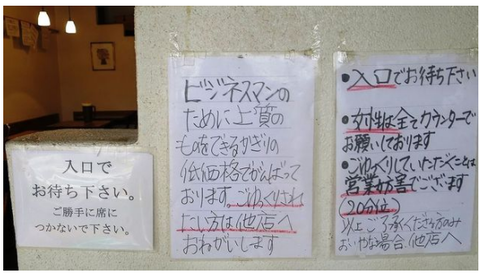 入口で
お待ち下さい。
ご勝手に席に
つかないで下さい。
ビジネスマンの
ために上質の
ものをできるかぎりの
低価格でがんばって
おります。ごゆっくりされ
たい方は他店へ
おねがいします
●入口でお待ち下さい
●女性は全てカウンターで
お願いしております
●ごゆっくりしていただくことは
営業妨害でございます
(20分位)
以上ご了承くださる方のみ
おいやな場合、他店へ